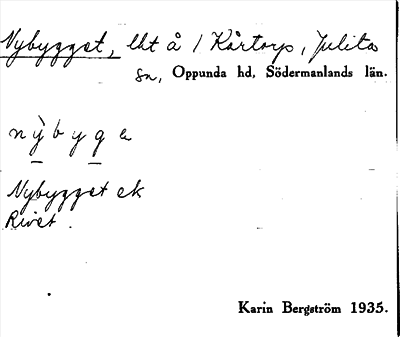 Nybygget, lht å / Kårtorp, Julita
sn, Oppunda hd, Södermanlands län.
nỳbyge
Nybygget ek
Rivet.
Karin Bergström 1935.